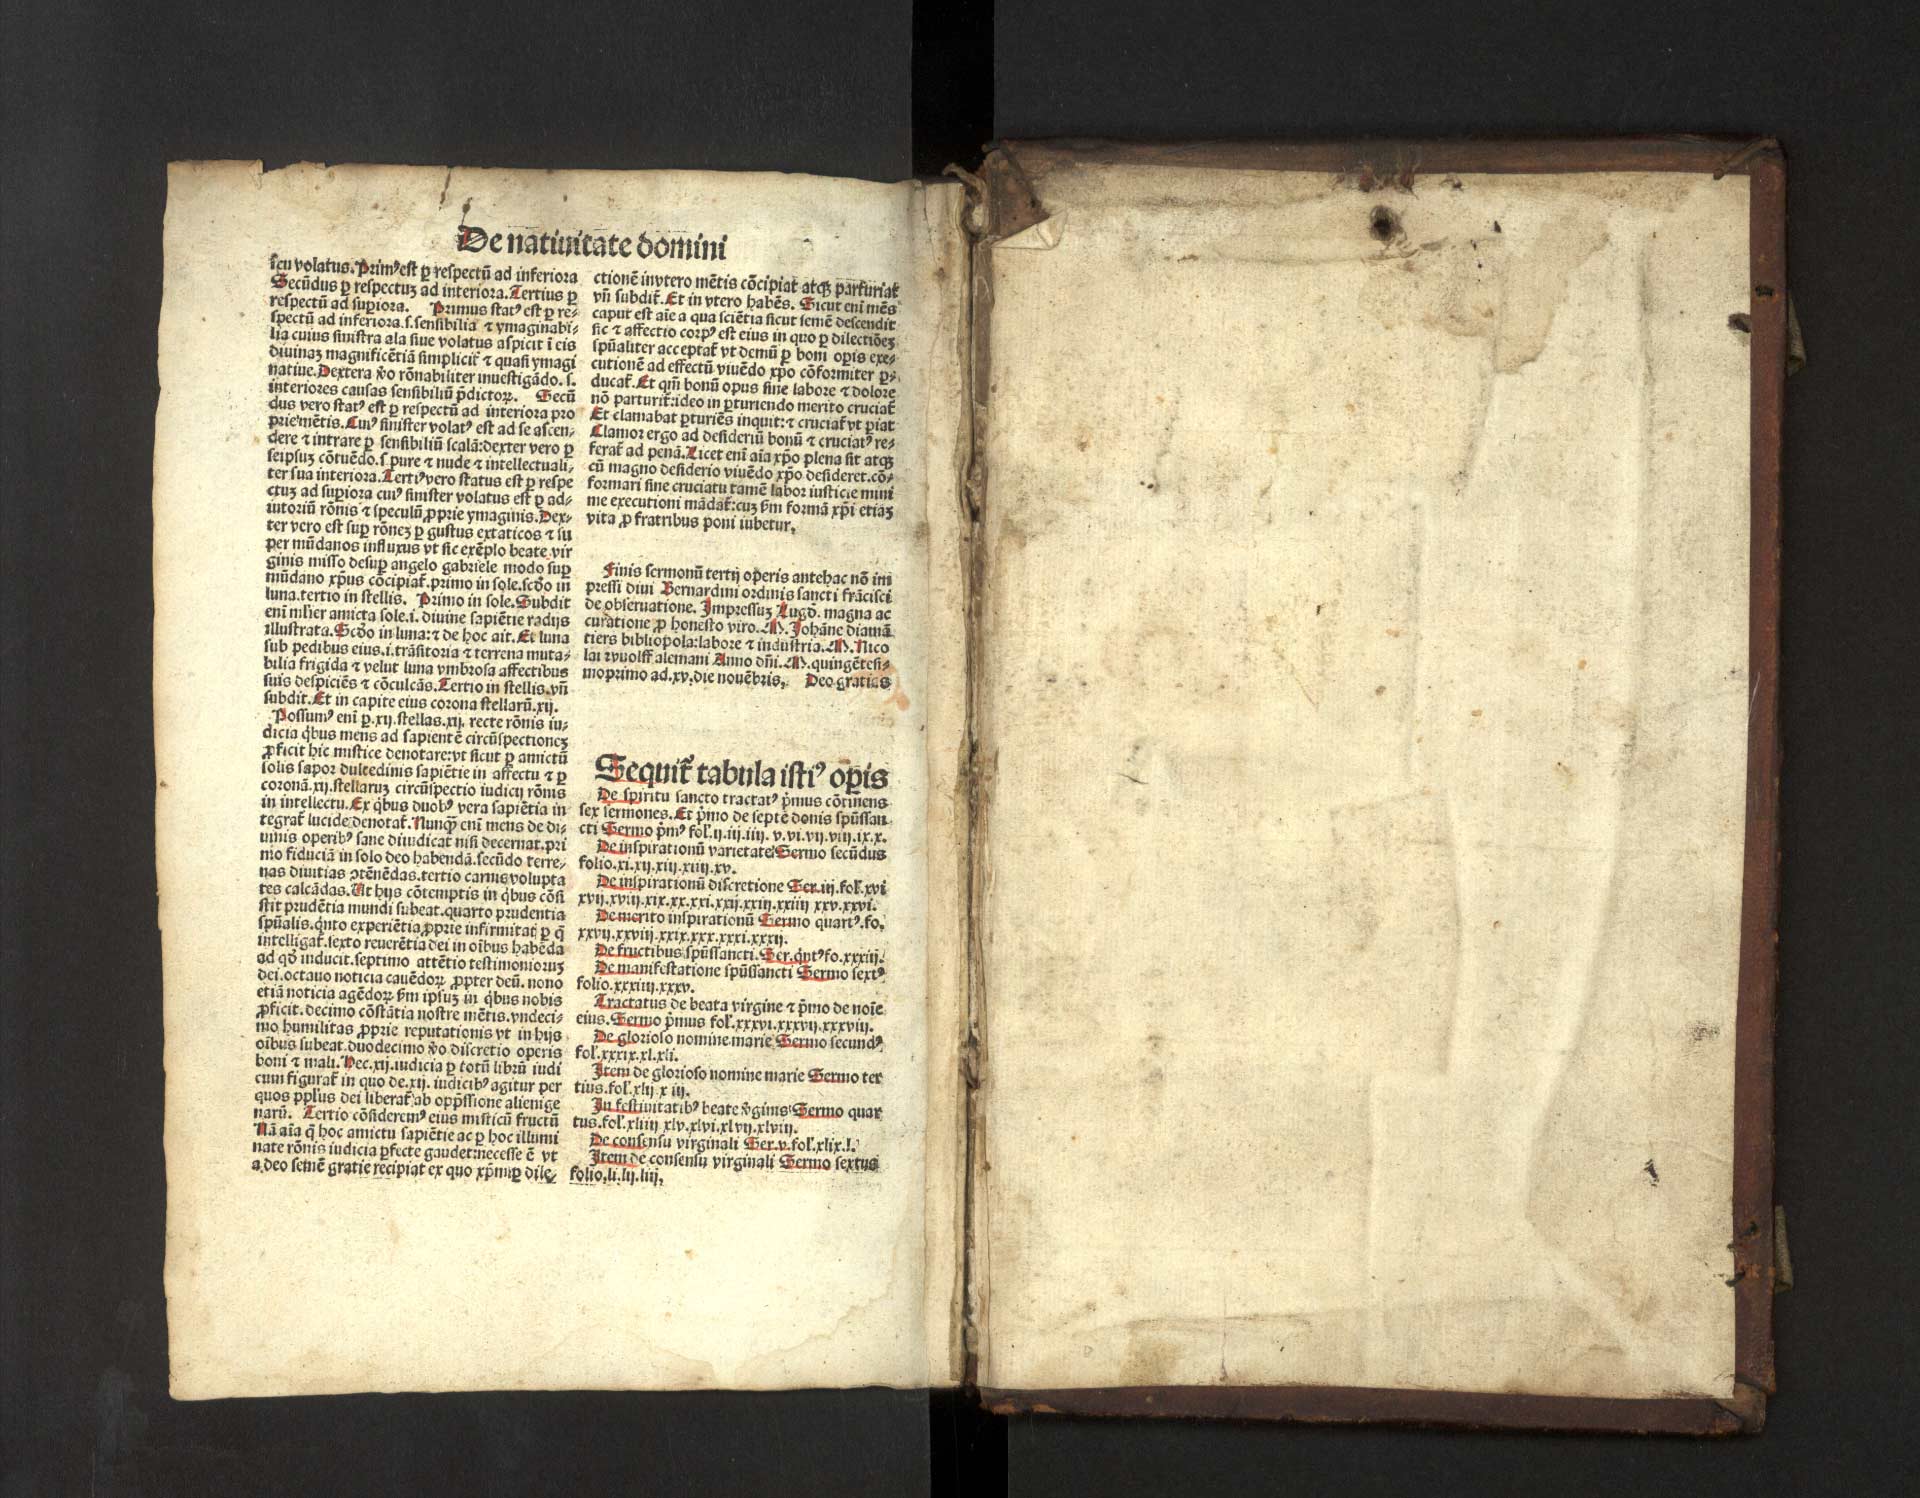 De natiuitate domini
ſcu volatus. Prim⁹ eſt ꝑ reſpectū ad inferiora
Secūdus ꝑ reſpectuȝ ad interiora. Tertius ꝑ
reſpectū ad ſuꝑiora. Primus ſtat⁹ eſt ꝑ re-
ſpectū ad inferiora.ſ.ſenſibilia ⁊ ymaginabi-
lia cuius ſiniſtra ala ſiue volatus aſpicit ī eis
diuinaȝ magnificētiā ſimplicit̄ ⁊ quaſi ymagi
natiue. Dextera v̄o rōnabiliter inueſtigādo.ſ.
interiores cauſas ſenſibiliū p̄dictoꝝ. Secū
dus vero ſtat⁹ eſt ꝑ reſpectū ad interiora pro
prie mētis. Cui⁹ ſiniſter volat⁹ eſt ad ſe aſcen-
dere ⁊ intrare ꝑ ſenſibiliū ſcalā: dexter vero ꝑ
ſeipſuȝ cōtuēdo.ſ. pure ⁊ nude ⁊ intellectuali-
ter ſua interiora. Terti⁹ vero ſtatus eſt ꝑ reſpe
ctuȝ ad ſuꝑiora cui⁹ ſiniſter volatus eſt ꝑ ad-
iutoriū rōnis ⁊ ſpeculū ꝓprie ymaginis. Dex-
ter vero eſt ſuꝑ rōneȝ ꝑ guſtus extaticos ⁊ ſu
per mūdanos influxus vt ſic exēplo beate vir
ginis miſſo deſuꝑ angelo gabriele modo ſuꝑ
mūdano xp̄us cōcipiat̄. primo in ſole. ſcd̄o in
luna. tertio in ſtellis. Primo in ſole. Subdit
enī ml̄ier amicta ſole.i. diuine ſapiētie radijs
illuſtrata. Scd̄o in luna: ⁊ de hoc ait. Et luna
ſub pedibus eius.i. trāſitoria ⁊ terrena muta-
bilia frigida ⁊ velut luna vmbroſa affectibus
ſuis deſpiciēs ⁊ cōculcās. Tertio in ſtellis. vn̄
ſubdit. Et in capite eius corona ſtellarū.xij.
Poſſum⁹ enī ꝑ.xij. ſtellas.xij. recte rōnis iu-
dicia q̄bus mens ad ſapientē circūſpectioneȝ
ꝓficit hic miſtice denotare: vt ſicut ꝑ amictū
ſolis ſapor dulcedinis ſapiētie in affectu ⁊ ꝑ
coronā.xij. ſtellaruȝ circūſpectio iudicij rōnis
in intellectu. Ex q̄bus duob⁹ vera ſapiētia in
tegrat̄ lucide denotat̄. Nunqꝫ enī mens de di-
uinis operib⁹ ſane diiudicat niſi decernat. pri
mo fiduciā in ſolo deo habendā. ſecūdo terre-
nas diuitias ꝯtēnēdas. tertio carnis volupta
tes calcādas. Ut hijs cōtemptis in q̄bus cōſi
ſtit prudētia mundi ſubeat. quarto prudentia
ſpūalis. q̄nto experiētia ꝓprie infirmitatꝭ ꝑ q̄
intelligat̄. ſexto reuerētia dei in oībus habēda
ad qd̄ inducit. ſeptimo attētio teſtimonioruȝ
dei. octauo noticia cauēdoꝝ ꝓpter deū. nono
etiā noticia agēdoꝝ ẜm ipſuȝ in q̄bus nobis
ꝓficit. decimo cōſtātia noſtre mētis. vndeci-
mo humilitas ꝓprie reputationis vt in hijs
oībus ſubeat. duodecimo v̄o diſcretio operis
boni ⁊ mali. Hec.xij. iudicia ꝑ totū librū iudi
cum figurat̄ in quo de.xij. iudicib⁹ agitur per
quos ppl̄us dei liberat̄ ab oppſſione alienige
narū. Tertio cōſiderem⁹ eius miſticū fructū
Nā aīa q̄ hoc amictu ſapiētie ac ꝑ hoc illumi
nate rōnis iudicia ꝑfecte gaudet: neceſſe ē vt
a deo ſemē gratie recipiat ex quo xp̄m ꝑ dile-
ctionē invtero mētis cōcipiat atqꝫ parturiat
vn̄ ſubdit̄. Et in vtero habēs. Sicut enī mēs
caput eſt aīe a qua ſciētia ſicut ſemē deſcendit
ſic ⁊ affectio corp⁹ eſt eius in quo ꝑ dilectiōeȝ
ſpūaliter acceptat̄ vt demū ꝑ boni oꝑis exe-
cutionē ad effectū viuēdo xp̄o cōformiter ꝑ-
ducat̄. Et qm̄ bonū opus ſine labore ⁊ dolore
nō parturit̄: ideo in ꝑturiendo merito cruciat̄
Et clamabat ꝑturiēs inquit: ⁊ cruciat̄ vt ꝑiat
Clamor ergo ad deſideriū bonū ⁊ cruciat⁹ re-
ferat̄ ad penā. Licet enī aīa xp̄o plena ſit atqꝫ
cū magno deſiderio viuēdo xp̄o deſideret. cō-
formari ſine cruciatu tamē labor iuſticie mini
me executioni mādat̄: cuȝ ẜm formā xp̄i etiaȝ
vita ꝓ fratribus poni iubetur.
Finis ſermonū tertij operis antehac nō im
preſſi diui Bernardini ordinis ſancti frāciſci
de obſeruatione. Impreſſuȝ Lugd̄. magna ac
curatione ꝓ honeſto viro. M. Johāne diamā
tiers bibliopola: labore ⁊ induſtria. M. Nico
lai wolff alemani Anno dn̄i. M. quingēteſi-
moprimo ad.xv. die nouēbris. Deo gratias
Sequit̄ tabula iſti⁹ oꝑis
De ſpiritu ſancto tractat⁹ p̄mus cōtinens
ſex ſermones. Et p̄mo de ſeptē donis ſpūſſan
cti Sermo p̄m⁹ fol̄.ij.iij.iiij. v.vi.vij.viij.ix.x.
De inſpirationū varietate Sermo ſecūdus
folio.xi.xij.xiij.xiiij.xv.
De inſpirationū diſcretione Ser.iij.fol̄.xvi
xvij.xviij.xix.xx.xxi.xxij.xxiij.xxiiij xxv.xxvi.
De merito inſpirationū Sermo quart⁹.fo.
xxvij.xxviij.xxix.xxx.xxxi.xxxij.
De fructibus ſpūſſancti. Ser.q̄nt⁹ fo.xxxiij.
De manifeſtatione ſpūſſancti Sermo ſext⁹
folio.xxxiiij.xxxv.
Tractatus de beata virgine ⁊ p̄mo de noīe
eius. Sermo p̄mus fol̄.xxxvi.xxxvij.xxxviij.
De glorioſo nomine marie Sermo ſecund⁹
fol̄.xxxix.xl.xli.
Item de glorioſo nomine marie Sermo ter
tius.fol̄.xlij x iij.
In feſtiuitatib⁹ beate v̄ginis Sermo quar
tus.fol̄.xliiij xlv.xlvi.xlvij.xlviij.
De conſenſu virginali Ser.v.fol̄.xlix.l.
Item de conſenſu virginali Sermo ſextus
folio.li.lij.liij.